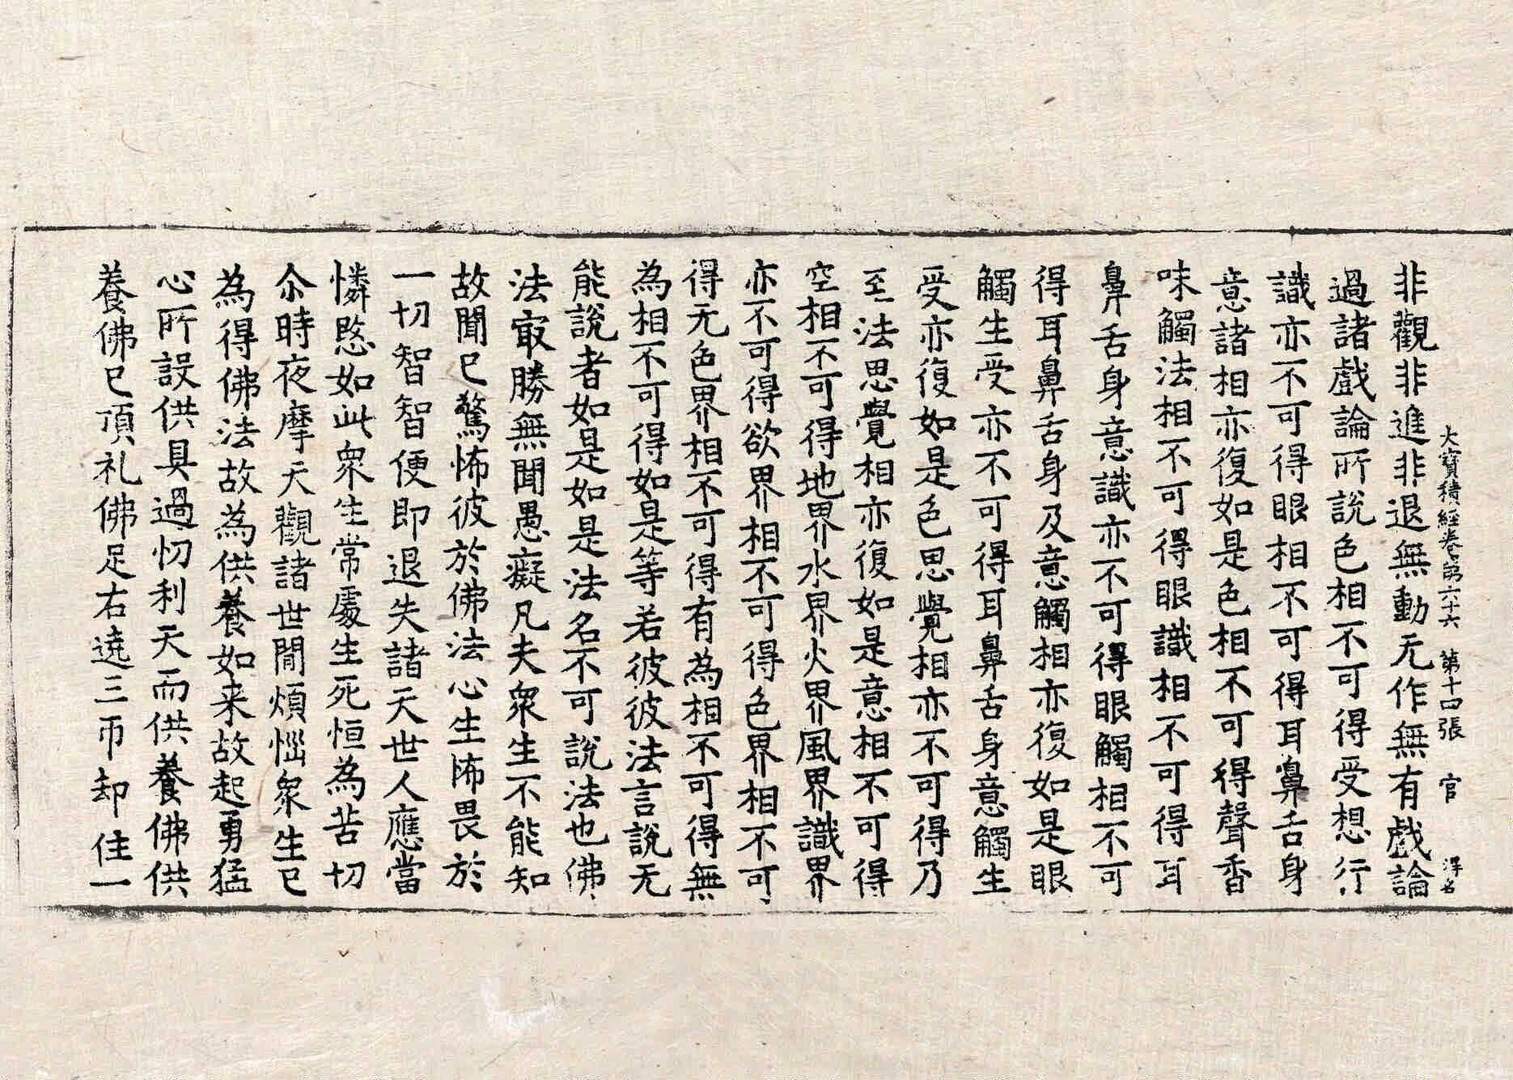 大寶積經卷第六十六 第十四張 官 得名
非觀非進非退無動无作無有戲論
過諸戲論所說色相不可得受想行
識亦不可得眼相不可得耳鼻舌身
意諸相亦復如是色相不可得聲香
味觸法相不可得眼識相不可得耳
鼻舌身意識亦不可得眼觸相不可
得耳鼻舌身及意觸相亦復如是眼
觸生受亦不可得耳鼻舌身意觸生
受亦復如是色思覺相亦不可得乃
至法思覺相亦復如是意相不可得
空相不可得地界水界火界風界識界
亦不可得欲界相不可得色界相不可
得无色界相不可得有為相不可得無
為相不可得如是等若彼彼法言說无
能說者如是如是法名不可說法也佛
法㝡勝無聞愚癡凡夫衆生不能知
故聞已驚怖彼於佛法心生怖畏於
一切智智便即退失諸天世人應當
憐愍如此衆生常處生死恒為苦切
尒時夜摩天觀諸世閒煩惱衆生已
為得佛法故為供養如来故起勇猛
心所設供具過忉利天而供養佛供
養佛已頂礼佛足右遶三帀却住一